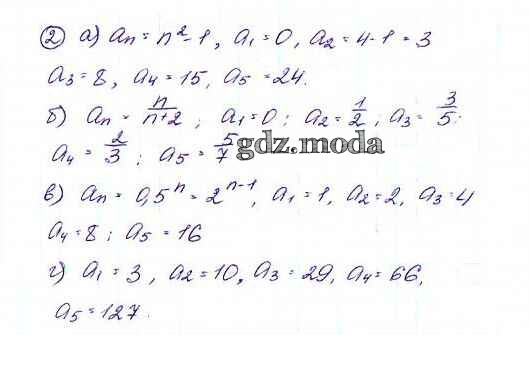 ② а) an = n² - 1, a₁ = 0, a₂ = 4 - 1 = 3
a₃ = 8, a₄ = 15, a₅ = 24.
б) an = n/(n+2); a₁ = 0; a₂ = 1/2; a₃ = 3/5;
a₄ = 2/3; a₅ = 5/7 gdz.moda
в) an = 0,5ⁿ = 2ⁿ⁻¹, a₁ = 1, a₂ = 2, a₃ = 4
a₄ = 8; a₅ = 16
г) a₁ = 3, a₂ = 10, a₃ = 29, a₄ = 66,
a₅ = 127.